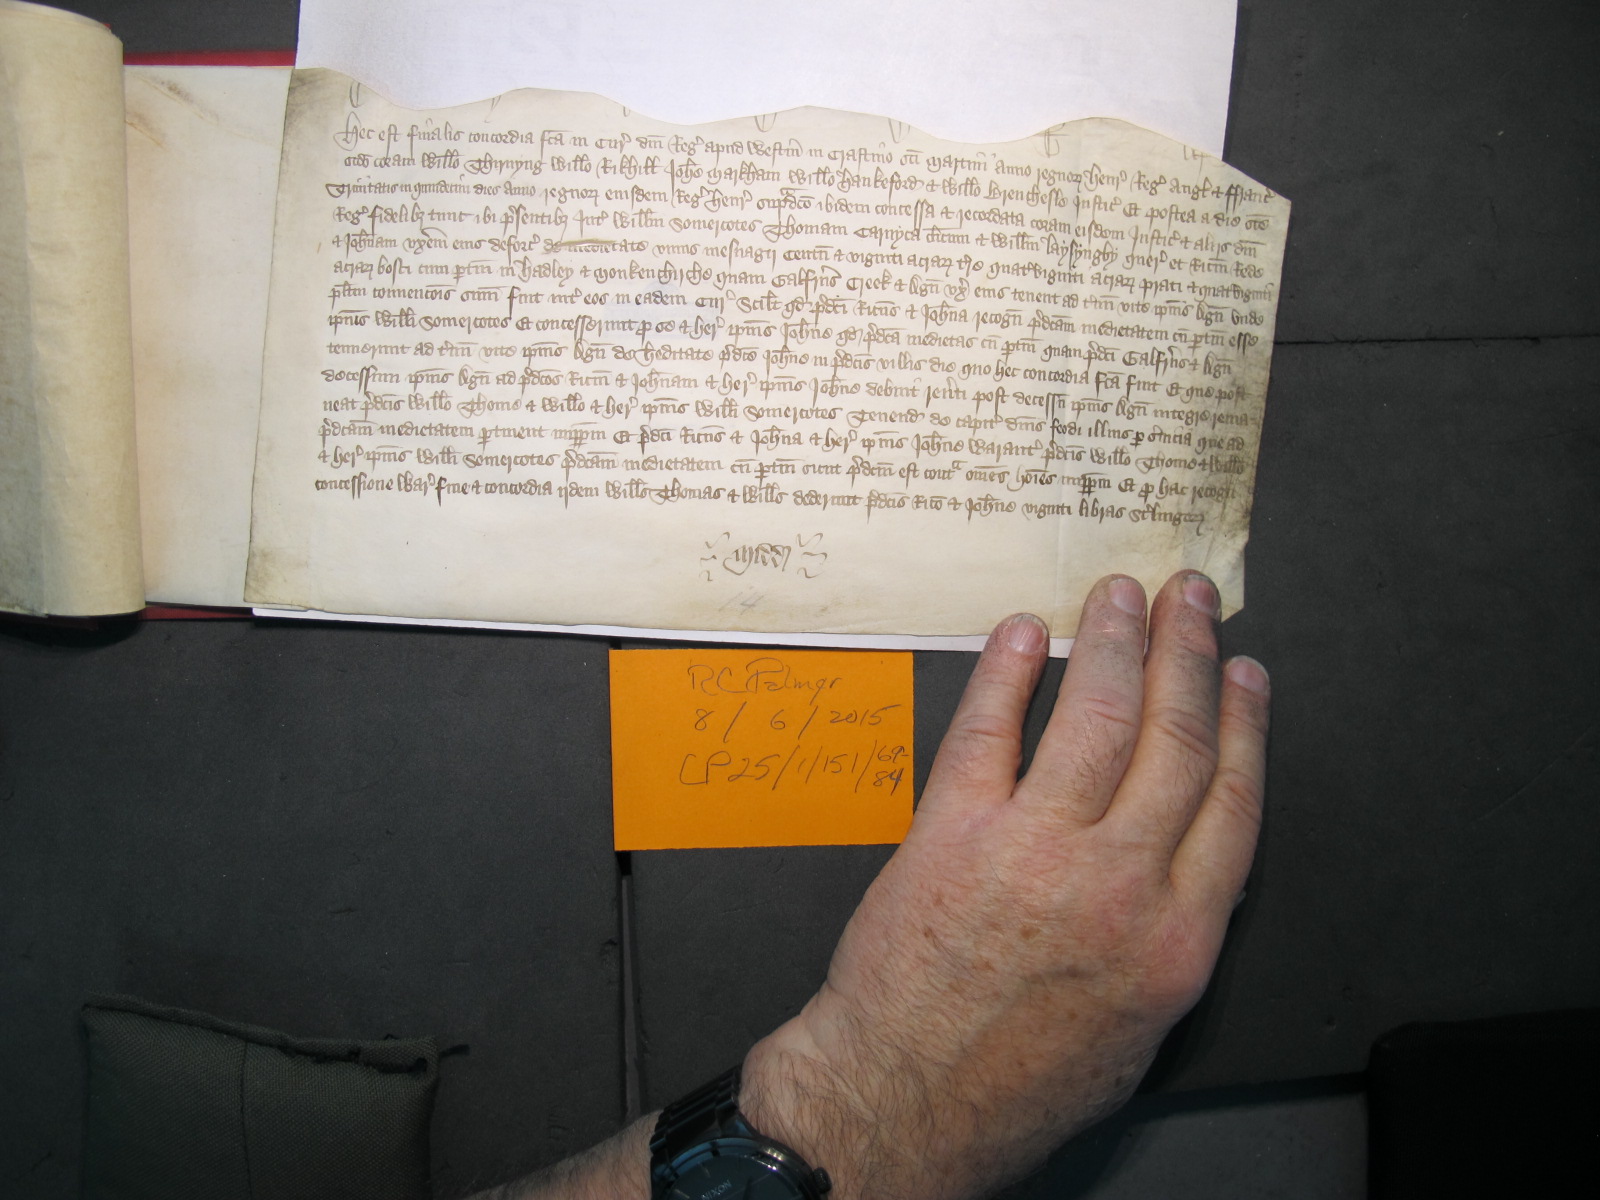 Hec est finalis concordia fc̄a in Cur' dn̄i Reg' apud Westm̄ in Crastino sc̄i Martini anno regnor' Henr' Reg' Angl' & Ffranc'
coram Will'o Thirnyng Will'o Rikhill Joh'e Markham Will'o Hankeford & Will'o Brenchesle Justic' Et postea a die sc̄e
Trinitatis in quindecim dies anno regnor' eiusdem Reg' Henr' sup̄dc̄o ibidem concessa & recordata coram eisdem Justic' & aliis dn̄i
Reg' fidelib3 tunc ibi p̄sentib3 Int' Will'm Somercotes Thomam Carnyca cl'icum & Will'm Laysyngby quer' et Ric̄m Rede
& Joh'nam vx̄em eius deforc' de medietate vnius mesuagii Centū & viginti acrar' t're quat'viginti acrar' prati & quat'viginti
acrar' bosci cum p̄tin̄ in Hadley & Monkenchirche quam Galfrid's Creek & Agn̄ vx' eius tenent ad t'm̄ vite ip̄ius Agn̄ vnde
pl'itm̄ conuenc̄ois sum̄ fuit int' eos in eadem Cur' Scilt' qd' p̄dc̄i Ric̄us & Joh'na recogn̄ p̄dc̄am medietatem cū p̄tin̄ esse
ip̄ius Will'i Somercotes Et concesserunt p̄ se & her' ip̄ius Joh'ne qd' p̄dc̄a medietas cū p̄tin̄ quam p̄dc̄i Galfr's & Agn̄
tenuerunt ad t'm̄ vite ip̄ius Agn̄ de heditate p̄dc̄e Joh'ne in p̄dc̄is villis die quo hec concordia fc̄a fuit Et que post
decessum ip̄ius Agn̄ ad p̄dc̄os Ric̄m & Joh'nam & her' ip̄ius Joh'ne debuit reu'ti post decessū ip̄ius Agn̄ integre rema
neat p̄dc̄is Will'o Thome & Will'o & her' ip̄ius Will'i Somercotes Tenend' de capit' dn̄is feodi illius p̄ s'uicia que ad
p̄dc̄am medietatem p̄tinent imp̄p̄m Et p̄dc̄i Ric̄us & Joh'na & her' ip̄ius Joh'ne Warant' p̄dc̄is Will'o Thome & Will'o
& her' ip̄ius Will'i Somercotes p̄dc̄am medietatem cū p̄tin̄ sicut p̄dc̄m est cont^a om̄es ho'ies imp̄p̄m Et p̄ hac recogn̄
concessione War' fine & concordia ijdem Will's Thomas & Will's dederunt p̄dc̄is Ric̄o & Joh'ne viginti libras St'lingor'
Midd'
14
RC Palmer
8 / 6 / 2015
CP25/1/151/69-
84
NIXON